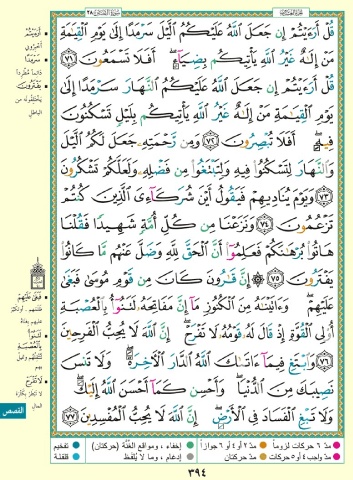 سورة القصص ٢٨
قُلْ أَرَءَيْتُمْ إِن جَعَلَ ٱللَّهُ عَلَيْكُمُ ٱلَّيْلَ سَرْمَدًا إِلَىٰ يَوْمِ ٱلْقِيَٰمَةِ
مَنْ إِلَٰهٌ غَيْرُ ٱللَّهِ يَأْتِيكُم بِضِيَآءٍ ۖ أَفَلَا تَسْمَعُونَ ٧١
قُلْ أَرَءَيْتُمْ إِن جَعَلَ ٱللَّهُ عَلَيْكُمُ ٱلنَّهَارَ سَرْمَدًا إِلَىٰ
يَوْمِ ٱلْقِيَٰمَةِ مَنْ إِلَٰهٌ غَيْرُ ٱللَّهِ يَأْتِيكُم بِلَيْلٍ تَسْكُنُونَ
فِيهِ ۖ أَفَلَا تُبْصِرُونَ ٧٢ وَمِن رَّحْمَتِهِۦ جَعَلَ لَكُمُ ٱلَّيْلَ
وَٱلنَّهَارَ لِتَسْكُنُوا۟ فِيهِ وَلِتَبْتَغُوا۟ مِن فَضْلِهِۦ وَلَعَلَّكُمْ تَشْكُرُونَ
٧٣ وَيَوْمَ يُنَادِيهِمْ فَيَقُولُ أَيْنَ شُرَكَآءِىَ ٱلَّذِينَ كُنتُمْ
تَزْعُمُونَ ٧٤ وَنَزَعْنَا مِن كُلِّ أُمَّةٍ شَهِيدًا فَقُلْنَا
هَاتُوا۟ بُرْهَٰنَكُمْ فَعَلِمُوٓا۟ أَنَّ ٱلْحَقَّ لِلَّهِ وَضَلَّ عَنْهُم مَّا كَانُوا۟
يَفْتَرُونَ ٧٥ إِنَّ قَٰرُونَ كَانَ مِن قَوْمِ مُوسَىٰ فَبَغَىٰ
عَلَيْهِمْ ۖ وَءَاتَيْنَٰهُ مِنَ ٱلْكُنُوزِ مَآ إِنَّ مَفَاتِحَهُۥ لَتَنُوٓأُ بِٱلْعُصْبَةِ
أُو۟لِى ٱلْقُوَّةِ إِذْ قَالَ لَهُۥ قَوْمُهُۥ لَا تَفْرَحْ ۖ إِنَّ ٱللَّهَ لَا يُحِبُّ ٱلْفَرِحِينَ
٧٦ وَٱبْتَغِ فِيمَآ ءَاتَىٰكَ ٱللَّهُ ٱلدَّارَ ٱلْءَاخِرَةَ ۖ وَلَا تَنسَ
نَصِيبَكَ مِنَ ٱلدُّنْيَا ۖ وَأَحْسِن كَمَآ أَحْسَنَ ٱللَّهُ إِلَيْكَ ۖ
وَلَا تَبْغِ ٱلْفَسَادَ فِى ٱلْأَرْضِ ۖ إِنَّ ٱللَّهَ لَا يُحِبُّ ٱلْمُفْسِدِينَ ٧٧
أَرَءَيْتُمْ
أخبروني
سَرْمَدًا
يَفْتَرُونَ
يختلقونه من
الباطل
فَبَغَىٰ عَلَيْهِمْ
لَتَنُوٓأُ
بِٱلْعُصْبَةِ
لَا تَفْرَحْ
القصص
مدّ ٦ حركات لزوماً
مدّ ٢ أو ٤ أو ٦ جوازاً
إخفاء، ومواقع الغُنَّة (حركتان)
تفخيم
مدّ واجب ٤ أو ٥ حركات
مدّ حركتان
إدغام، وما لا يُلفَظ
قلقلة
٣٩٤